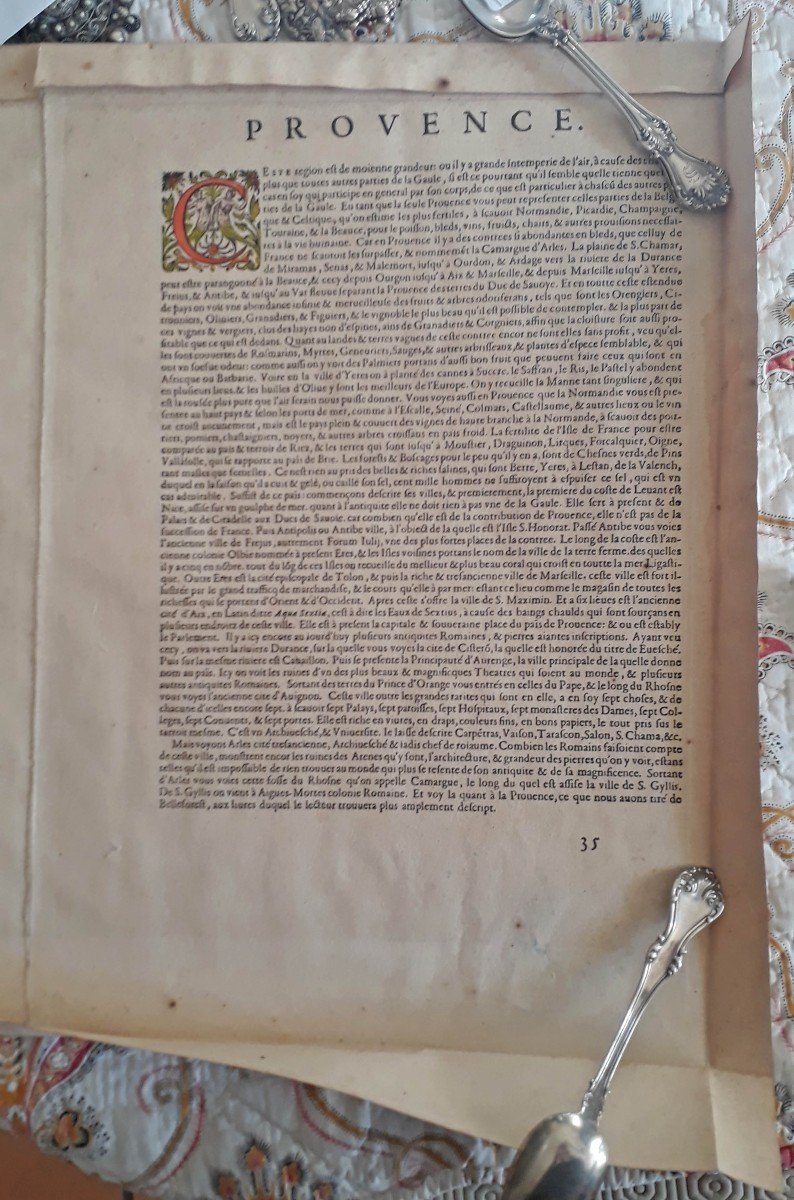 PROVENCE.
CESTE region est de moienne grandeur: ou il y a grande Intemperie de l'air, à cause des
plus que toutes autres parties de la Gaule, si est ce pourtant qu'il semble quelle tienne
cas en soy qui participe en general par son corps, de ce que est particulier à chascũ des autres
ties de la Gaule. En tant que la seule Provence vous peut representer celles parties de la Belg
que & Celtique, qu'on estime les plus fertiles, à sçauoir Normandie, Picardie, Champaigne,
Touraine, & la Beauce, pour le poisson, bleds, vins, fruicts, chairs, & autres prouisions necessai-
res à la vie humaine. Car en Prouence il y a des contrees si abondantes en bleds, que celluy de
France ne sçauroit les surpasser, & nommemẽt la Camargue d'Arles. La plaine de S. Chamar,
de Miramas, Senas, & Malemort, iusqu'a Ourdon, & Ardage vers la riuiere de la Durance
peut estre parangonné à la Beauce, & cecy depuis Ourgon iusqu'a Aix & Marseille, & depuis Marseille iusqu'a Yeres,
Freius, & Antibe, & iusqu'au Var fleuue separant la Prouence des terres du Duc de Sauoye. Et en toute ceste estendue
de pays on voit vne abondance infinie & merueilleuse des fruits & arbres odoriferans, tels que sont les Orengiers, Ci-
tronniers, Oliuiers, Granadiers, & Figuiers, & le vignoble le plus beau qu'il est possible de contempler. & la plus part de
ces vignes & vergiers, clos des hayes non d'espines, ains de Granadiers & Corgniers, affin que la cloisture soit aussi pro-
fitable que ce qui est dedans. Quant au landes & terres vagues de ceste contree encor ne sont elles sans profit, veu qu'el-
les sont couuertes de Rosmarins, Myrtes, Geneuriers, Sauges, & autres arbrisseaux, & plantes d'espece semblable, & qui
ont vn soefue odeur: comme aussi on y voit des Palmiers portans d'aussi bon fruit que peuuent faire ceux qui sont en
Africque ou Barbarie. Voire en la ville d'Yeres on à planté des cannes à Succre. le Saffran, le Ris, le Pastel y abondent
en plusieurs lieus. & les huilles d'Oliue y sont les meilleurs de l'Europe. On y recueille la Manne tant singuliere, & qui
est la rousée plus pure que l'air serain nous puisse donner. Vous voyez aussi en Prouence que la Normandie vous est pre-
sentee au haut pays & selon les ports de mer, comme à l'Escalle, Seine, Colmars, Castellaume, & autres lieux ou le vin
ne croist aucunement, mais est le pays plein & couuert des vignes de haute branche à la Normande, à sçauoir des poi-
riers, pomiers, chastaigniers, noyers, & autres arbres croissans en pais froid. La fertilite de l'Isle de France pour estre
comparée au pais & terroir de Riez, & les terres qui sont iusqu'a Moustier, Draguinon, Lirques, Forcalquier, Oigne,
Vallasolle, qui se rapporte au pais de Brie. Les forests & Boscages pour le peu qu'il y en a, sont de Chesnes verds, de Pins
tant masles que femelles. Ce nest rien au pris des belles & riches salines, qui sont Berre, Yeres, à Lestan, de la Valench,
duquel en la saison qu'il a cuit & gelé, ou caillé son sel, cent mille hommes ne suffiroyent à espuiser ce sel, qui est vn
cas admirable. Suffist de ce pais: commençons descrire ses villes, & premierement, la premiere du coste de Leuant est
Nice, assise sur vn goulphe de mer. quant à l'antiquité elle ne doit rien à pas vne de la Gaule. Elle sert à present & de
Palais & de Citadelle aux Ducs de Sauoie. car combien qu'elle est de la contribution de Prouence, elle n'est pas de la
succession de France. Puis Antipolis ou Antibe ville, à l'obiect de la quelle est l'Isle S. Honorat. Passé Antibe vous voies
l'ancienne ville de Frejus, autrement Forum Iulij, vne des plus fortes places de la contree. Le long de la coste est l'an-
cienne colonie Olbie nommée à present Eres, & les Isles voisines portans le nom de la ville de la terre ferme. des quelles
il y a cinq en nõbre. tout du lõg de ces Isles ou recueille du meilleur & plus beau coral qui croist en toute la mer Ligasti-
que. Outre Eres est la cité episcopale de Tolon, & puis la riche & tresancienne ville de Marseille. ceste ville est fort il-
lustrée par le grand trafficq de marchandise, & le cours qu'elle à par mer: estant ce lieu comme le magasin de toutes les
richesses qui se portent d'Orient & d'Occident. Apres ceste s'offre la ville de S. Maximin. Et a six lieues est l'ancienne
cité d'Aix, en Latin ditte Aquæ Sextiæ, cest à dire les Eaux de Sextius, à cause des baings chaulds qui sont sourçans en
plusieurs endroitz de ceste ville. Elle est à present la capitale & souueraine place du pais de Prouence: & ou est estably
le Parlement. Il y a icy encore au jourd'huy plusieurs antiquites Romaines, & pierres aiantes inscriptions. Ayant veu
cecy, on va vers la riuiere Durance, sur la quelle vous voyes la cite de Cisterõ, la quelle est honorée du titre de Euesché.
Puis sur la mesme riuiere est Cauaillon. Puis se presente la Principauté d'Aurenge, la ville principale de la quelle donne
nom au pais. Icy on voit les ruines d'vn des plus beaux & magnificques Theatres qui soient au monde, & plusieurs
autres antiquites Romaines. Sortant des terres du Prince d'Orange vous entrés en celles du Pape, & le long du Rhosne
vous voyes l'ancienne cite d'Auignon. Ceste ville outre les grandes rarites qui sont en elle, a en soy sept choses, & de
chacune d'icelles encore sept. à sçauoir sept Palays, sept paroisses, sept Hospitaux, sept monasteres des Dames, sept Col-
leges, sept Conuents, & sept portes. Elle est riche en viures, en draps, couleurs fins, en bons papiers, le tout pris sus le
terroir mesme. C'est vn Archiuesché, & Vniuersite. le laisse descrire Carpẽtras, Vaison, Tarascon, Salon, S. Chama, &c.
Mais voyons Arles cité tresancienne, Archiuesché & iadis chef de roiaume. Combien les Romains faisoient compte
de ceste ville, monstrent encor les ruines des Arenes qu'y sont, l'architecture, & grandeur des pierres qu'on y voit, estans
telles qu'il est impossible de rien trouuer au monde qui plus se resente de son antiquité & de sa magnificence. Sortant
d'Arles vous voies cette fosse du Rhosne qu'on appelle Camargue, le long du quel est assise la ville de S. Gyllis.
De S. Gyllis on vient à Aigues-Mortes colonie Romaine. Et voy la quant à la Prouence, ce que nous auons tiré de
Belleforest, aux liures duquel le lecteur trouuera plus amplement descript.
35